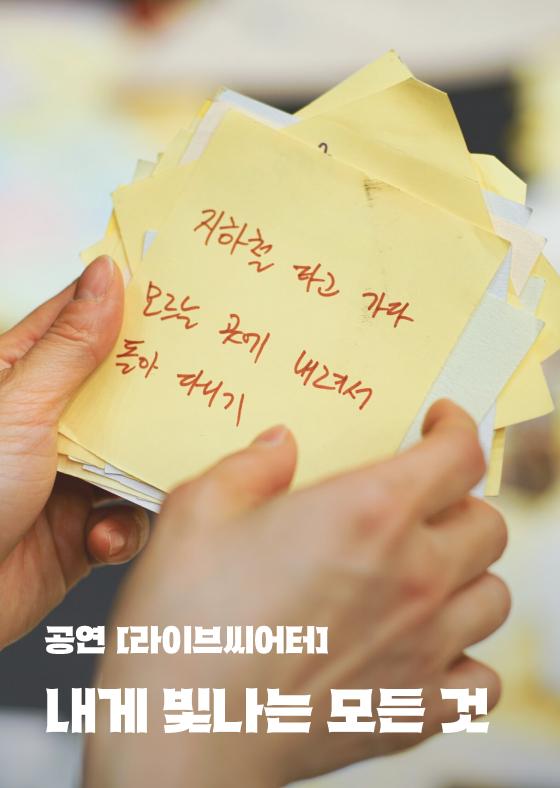 지하철 타고 가다
모르는 곳에 내려서
돌아 다니기
공연 [라이브씨어터]
내게 빛나는 모든 것